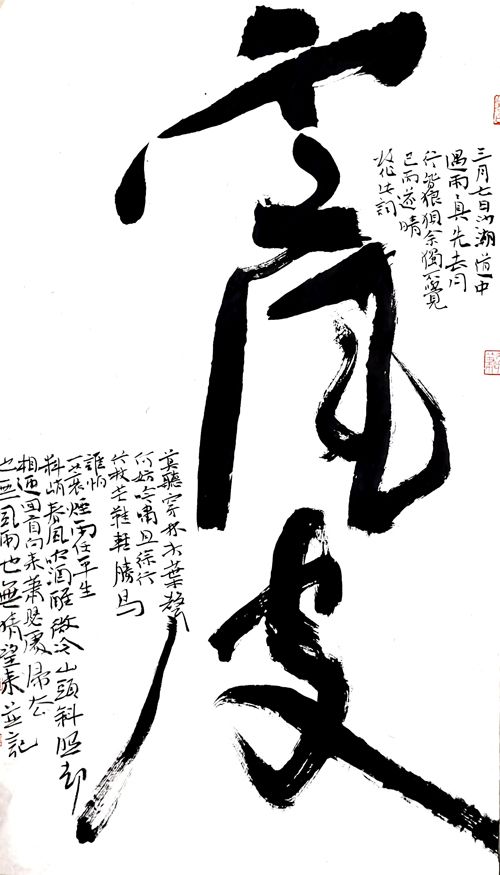 定風波
三月七日沙湖道中
遇雨〻具先去同
行皆狼狽余獨不覺
已而遂晴
故作此詞
莫聽穿林打葉聲
何妨吟嘯且徐行
竹杖芒鞋輕勝馬
誰怕
一蓑煙雨任平生
料峭春風吹酒醒微冷山頭斜照却
相迎回首向來蕭瑟處歸去
也無風雨也無晴望來並記